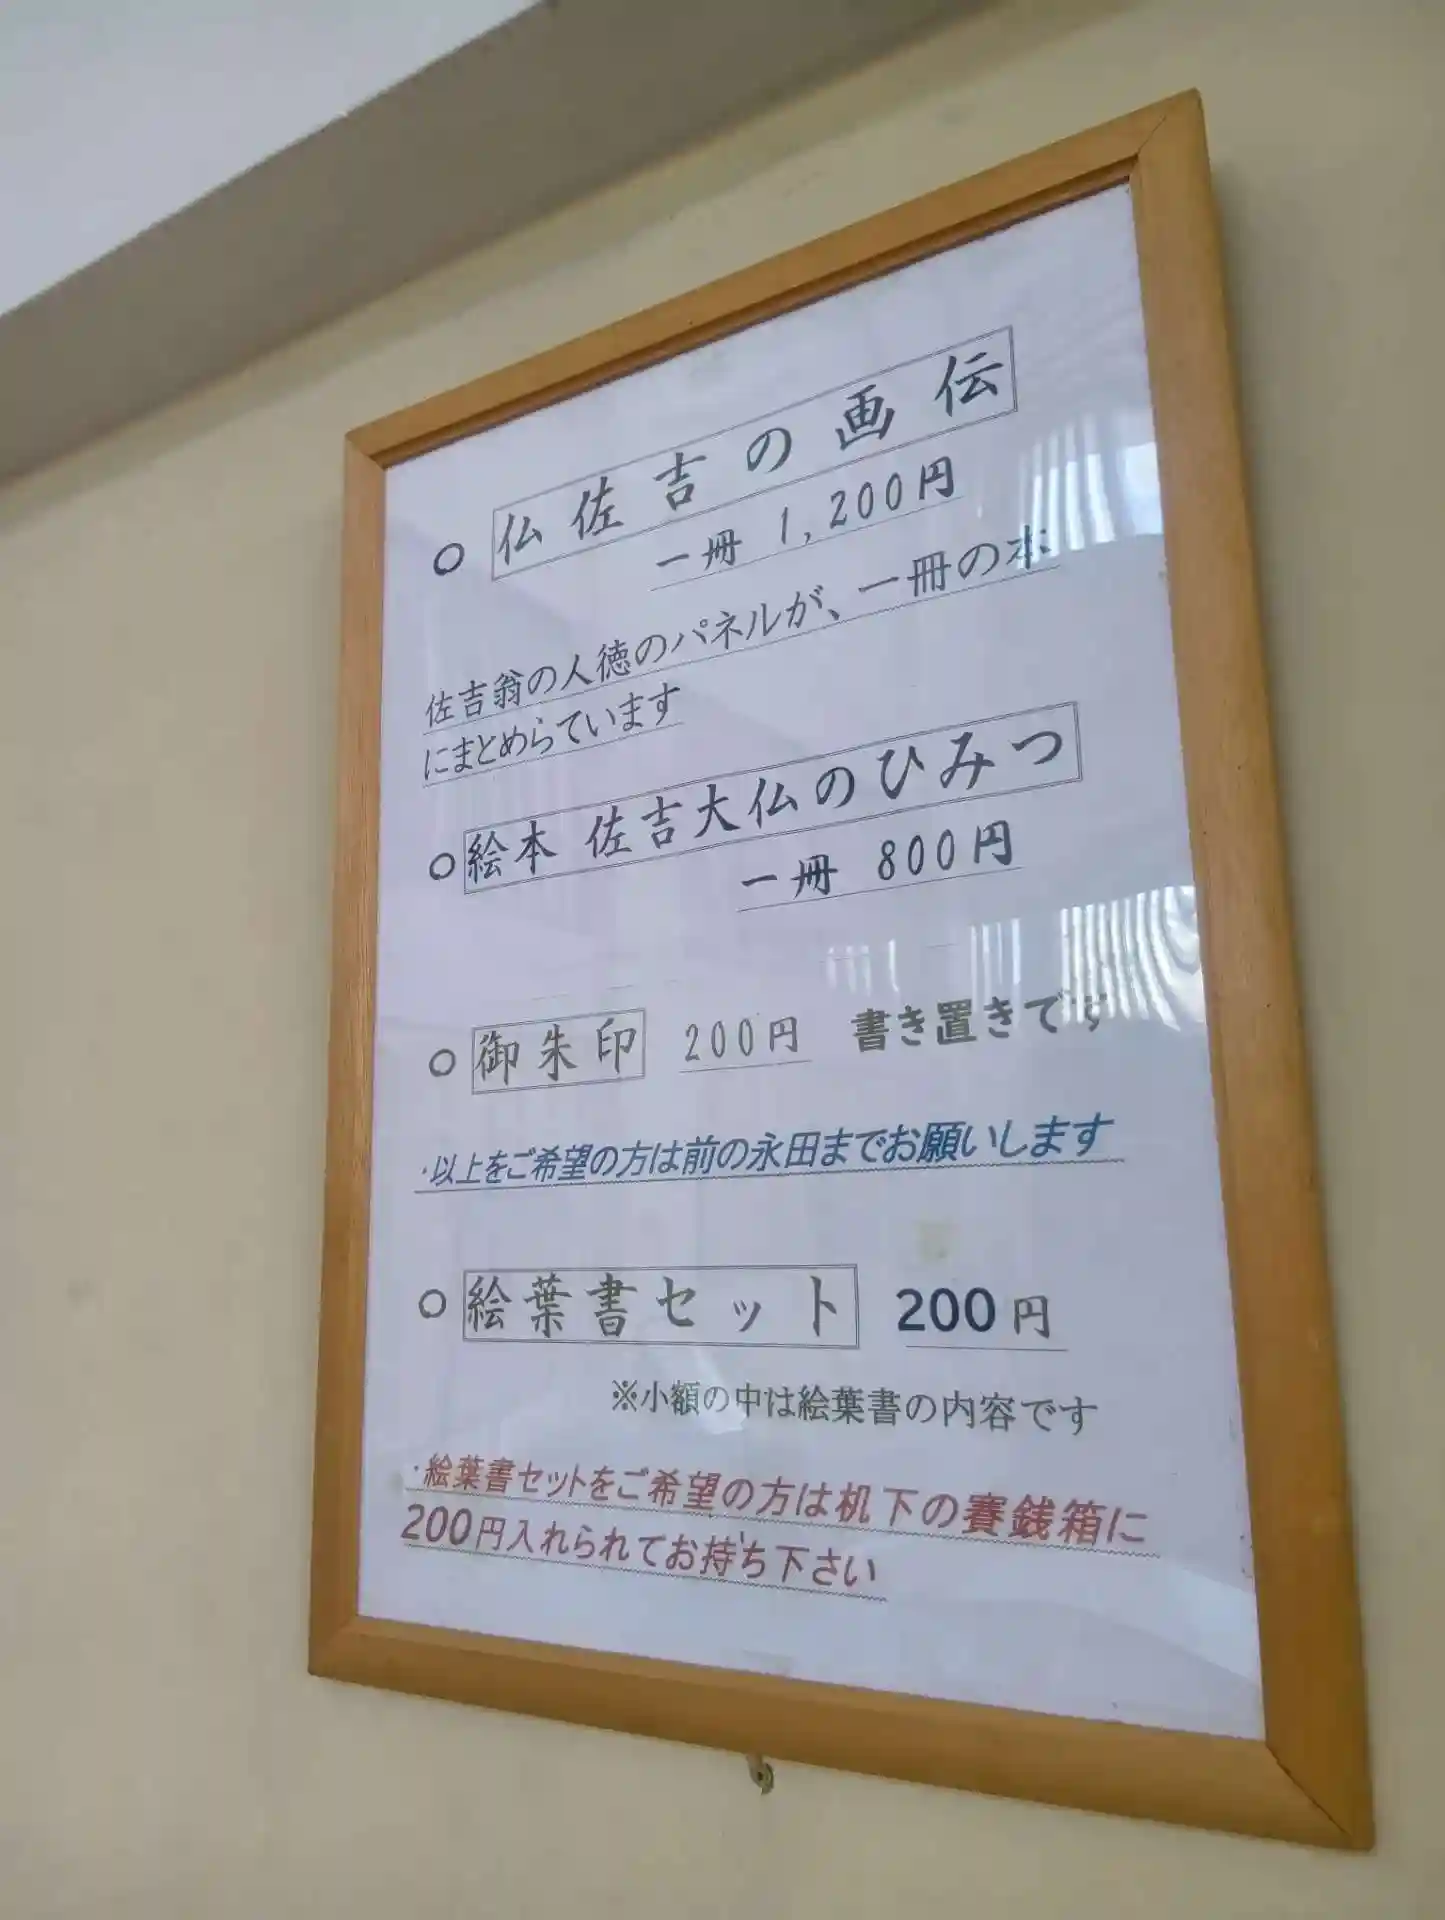 ○ 仏佐吉の画伝
一冊 1,200円
佐吉翁の人徳のパネルが、一冊の本
にまとめらています
○ 絵本 佐吉大仏のひみつ
一冊 800円
○ 御朱印 200円 書き置きです
・以上をご希望の方は前の永田までお願いします
○ 絵葉書セット 200円
※小額の中は絵葉書の内容です
・絵葉書セットをご希望の方は机下の賽銭箱に
200円入れられてお持ち下さい